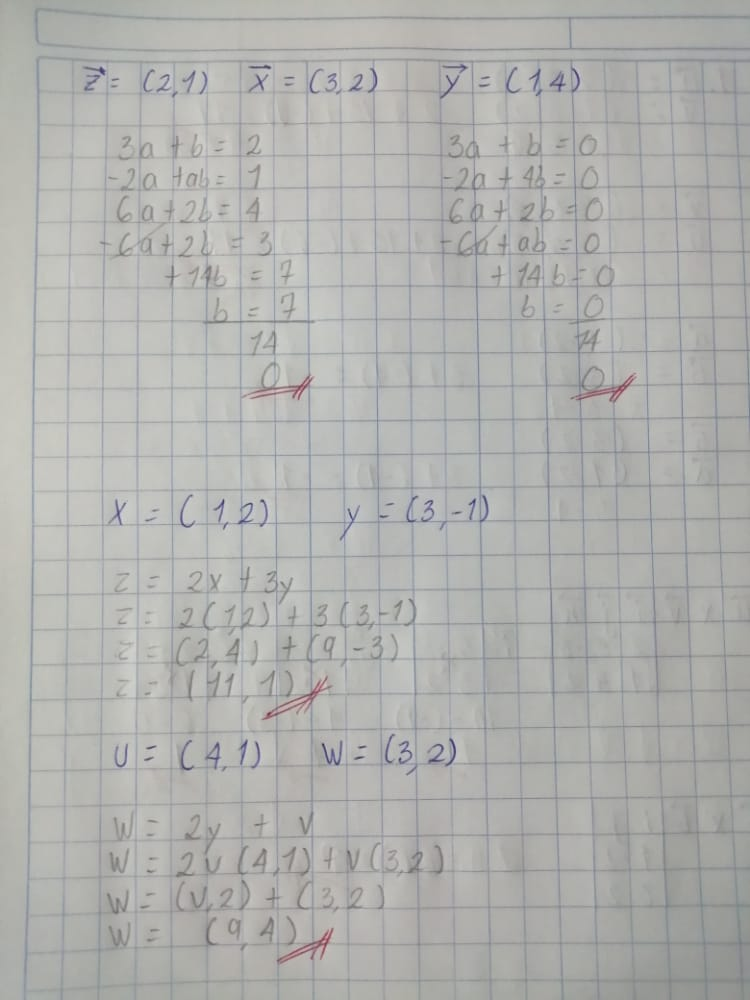 z⃗ = (2,1) x⃗ = (3,2) y⃗ = (1,4)
3a + b = 2
-2a + ab = 1
6a + 2b = 4
-6a + 2b = 3
+14b = 7
b = 7
14
0
3a + b = 0
-2a + 4b = 0
6a + 2b = 0
-6a + ab = 0
+14b = 0
b = 0
14
0
x = (1,2) y = (3,-1)
z = 2x + 3y
z = 2(1,2) + 3(3,-1)
z = (2,4) + (9,-3)
z = (11,1)
U = (4,1) W = (3,2)
W = 2y + V
W = 2U(4,1) + V(3,2)
W = (V,2) + (3,2)
W = (9,4)